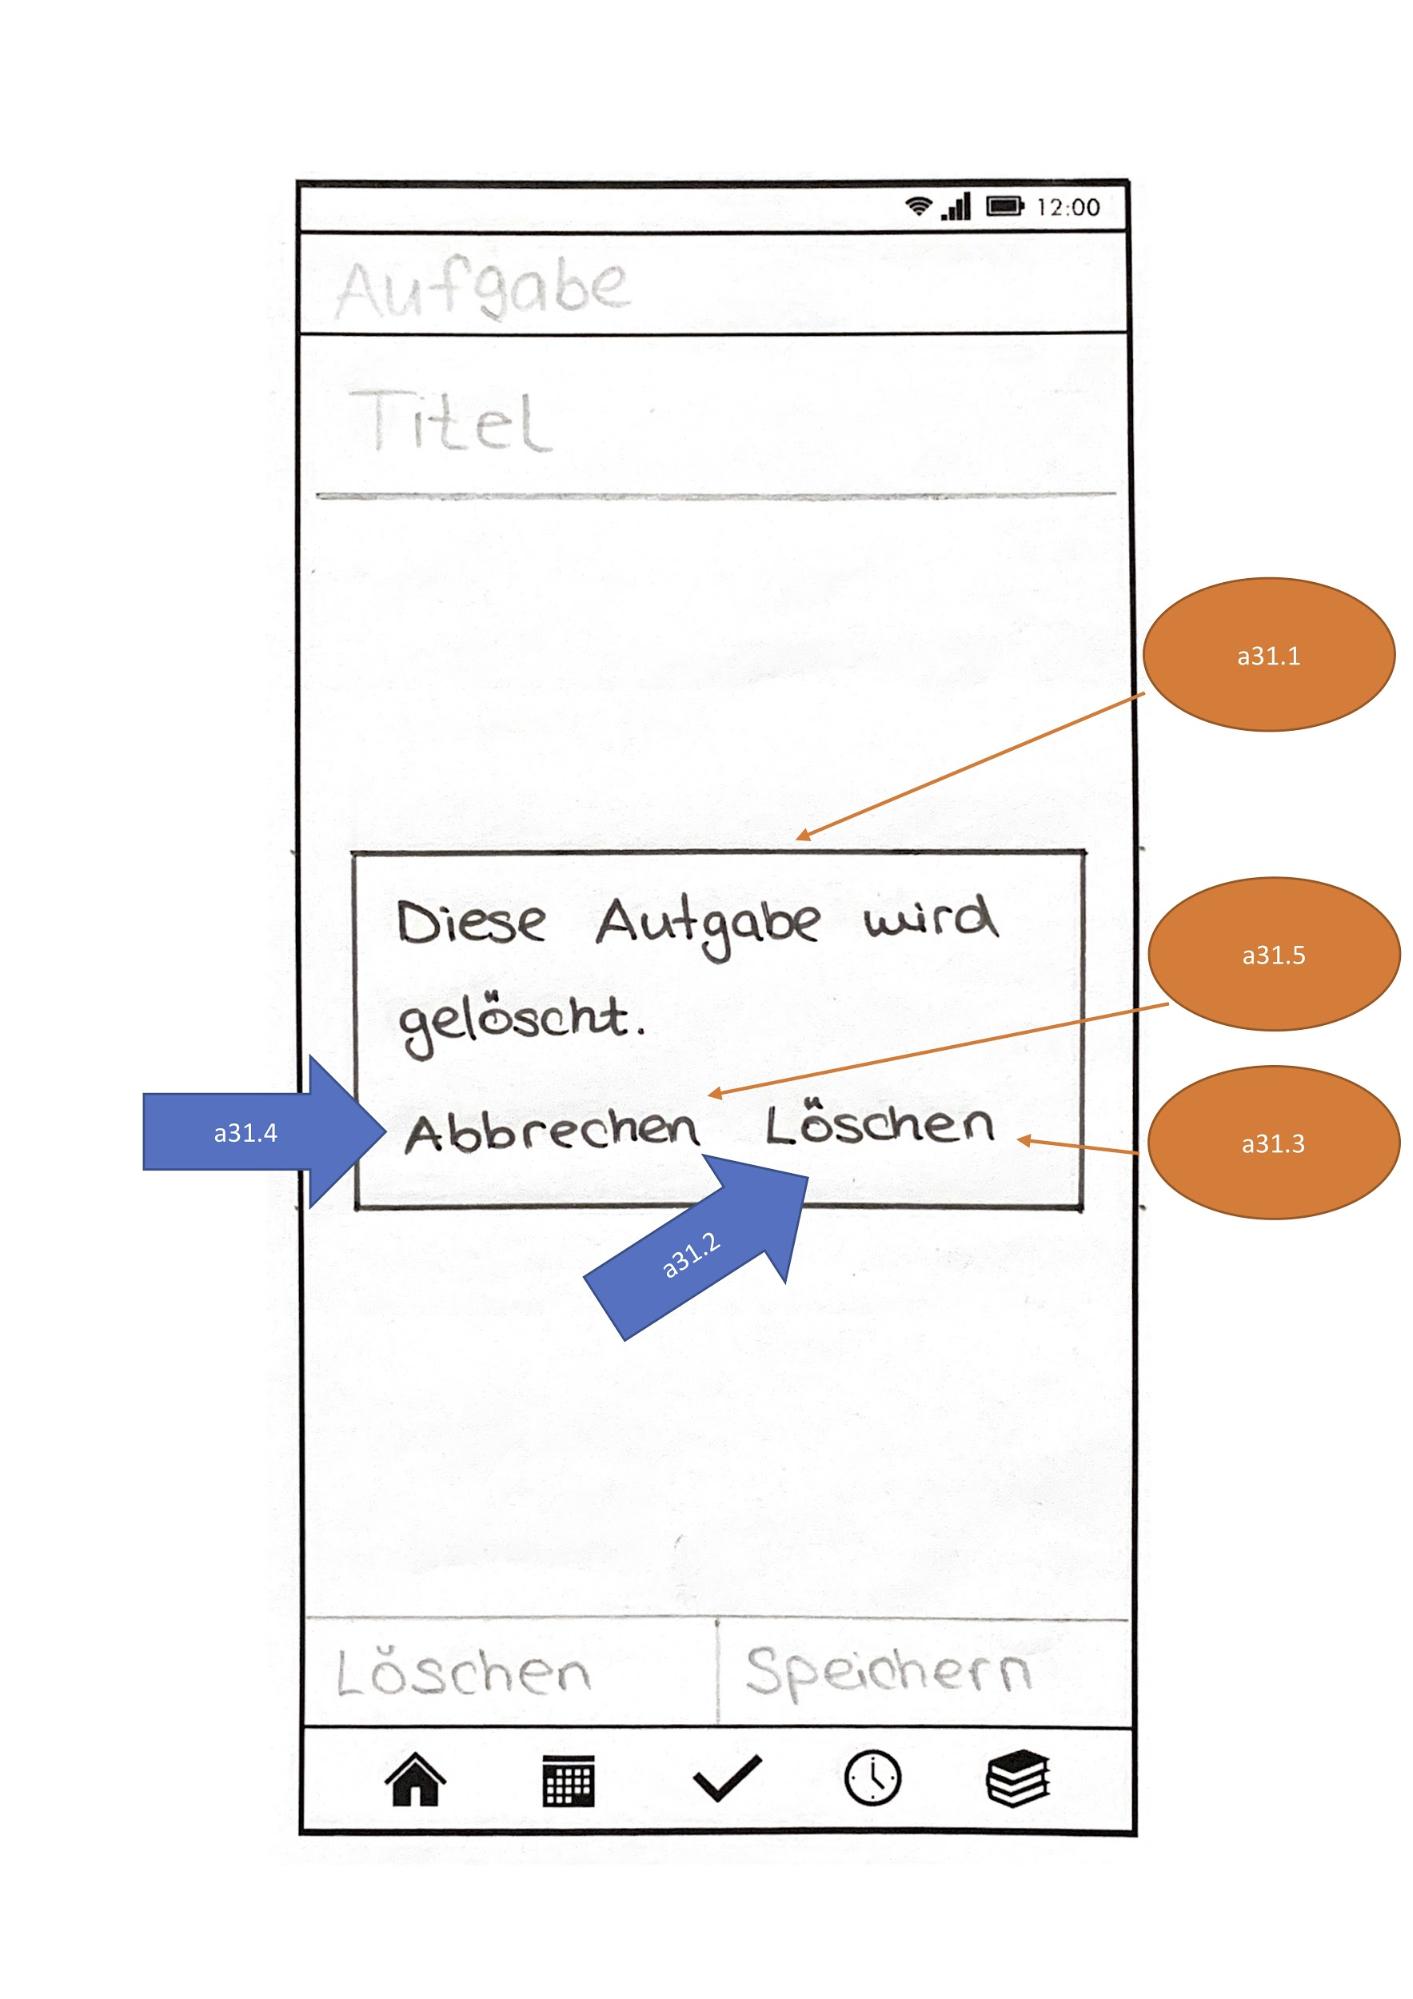 12:00
Aufgabe
Titel
a31.1
Diese Aufgabe wird
a31.5
gelöscht.
a31.4
Abbrechen Löschen
a31.3
a31.2
Löschen Speichern